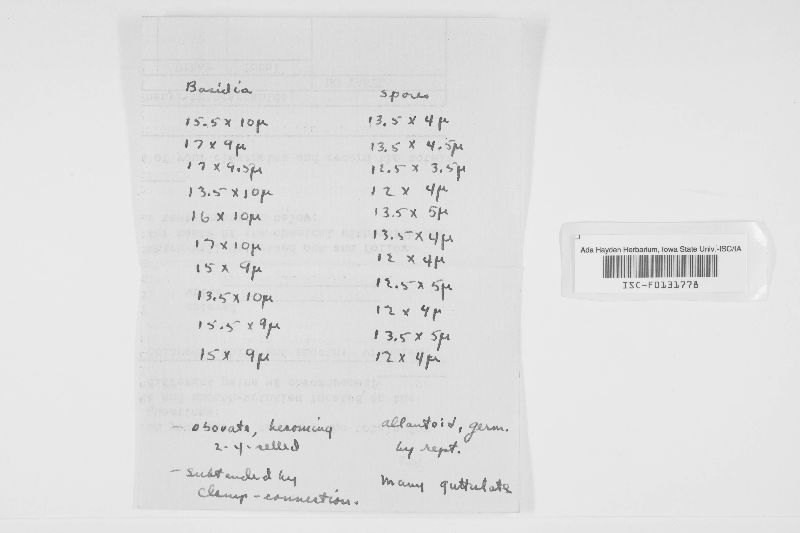 Basidia
15.5 x 10µ
17 x 9µ
17 x 9.5µ
13.5 x 10µ
16 x 10µ
17 x 10µ
15 x 9µ
13.5 x 10µ
15.5 x 9µ
15 x 9µ
- obovate, becoming
2-4-celled
- subtended by
clamp-connection.
spores
13.5 x 4µ
13.5 x 4.5µ
12.5 x 3.5µ
12 x 4µ
13.5 x 5µ
13.5 x 4µ
12 x 4µ
12.5 x 5µ
12 x 4µ
13.5 x 5µ
12 x 4µ
allantoid, germ.
by rept.
Many guttulate
Ada Hayden Herbarium, Iowa State Univ.-ISC/IA
ISC-F0131778